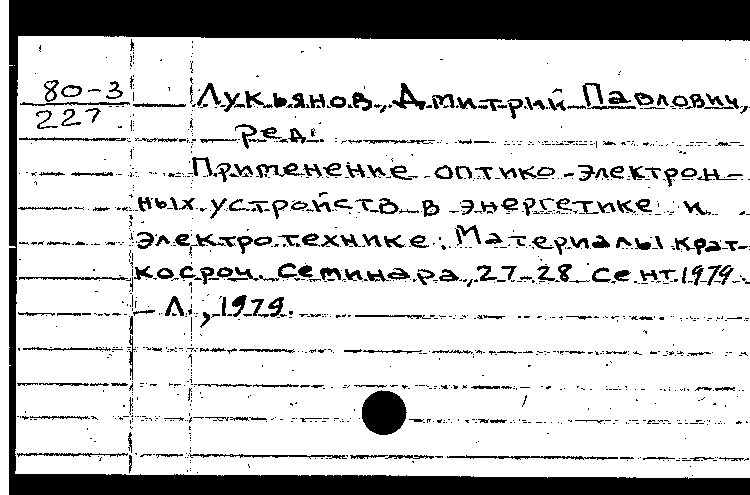 80-3
227
Лукьянов, Дмитрий Павлович,
ред.
Применение оптико-электрон-
ных устройств в энергетике и
электротехнике. Материалы крат-
косроч. семинара, 27-28 сент. 1979.
- Л., 1979.